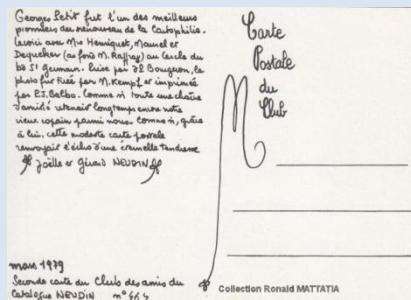 Georges Petit fut l'un des meilleurs
pionniers du renouveau de la Cartophilie.
Le voici avec Mrs Henriquet, Mauuel et
Dequeker (au fond M. Raffray) au Cercle du
Bd St Germain. Prise par J.L Bougeron, la
photo fut tirée par M. Kempf et imprimée
par P.J. Balbo. Comme si toute une chaîne
d'amitié retenait longtemps encore notre
vieux copain parmi nous. Comme si, grâce
à lui, cette modeste carte postale
renvoyait l'écho d'une éternelle tendresse
Joëlle et Gérard NEUDIN
mars 1979
Seconde carte du Club des amis du
Catalogue NEUDIN n°
Carte
Postale
du
Club
M
Collection Ronald MATTATIA